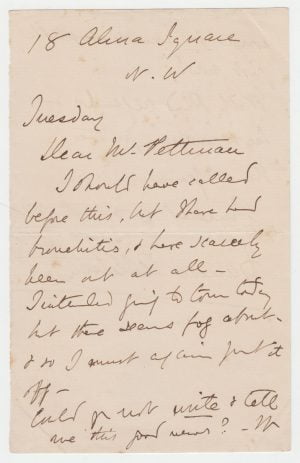 18 Alma Square
N. W
Tuesday
Dear Mr. Pettman
I should have called
before this, but I have had
bronchitis, & have scarcely
been out at all –
I intended going to town today
but there seems fog about –
& so I must again put it
off –
Could you not write & tell
me this good news? –